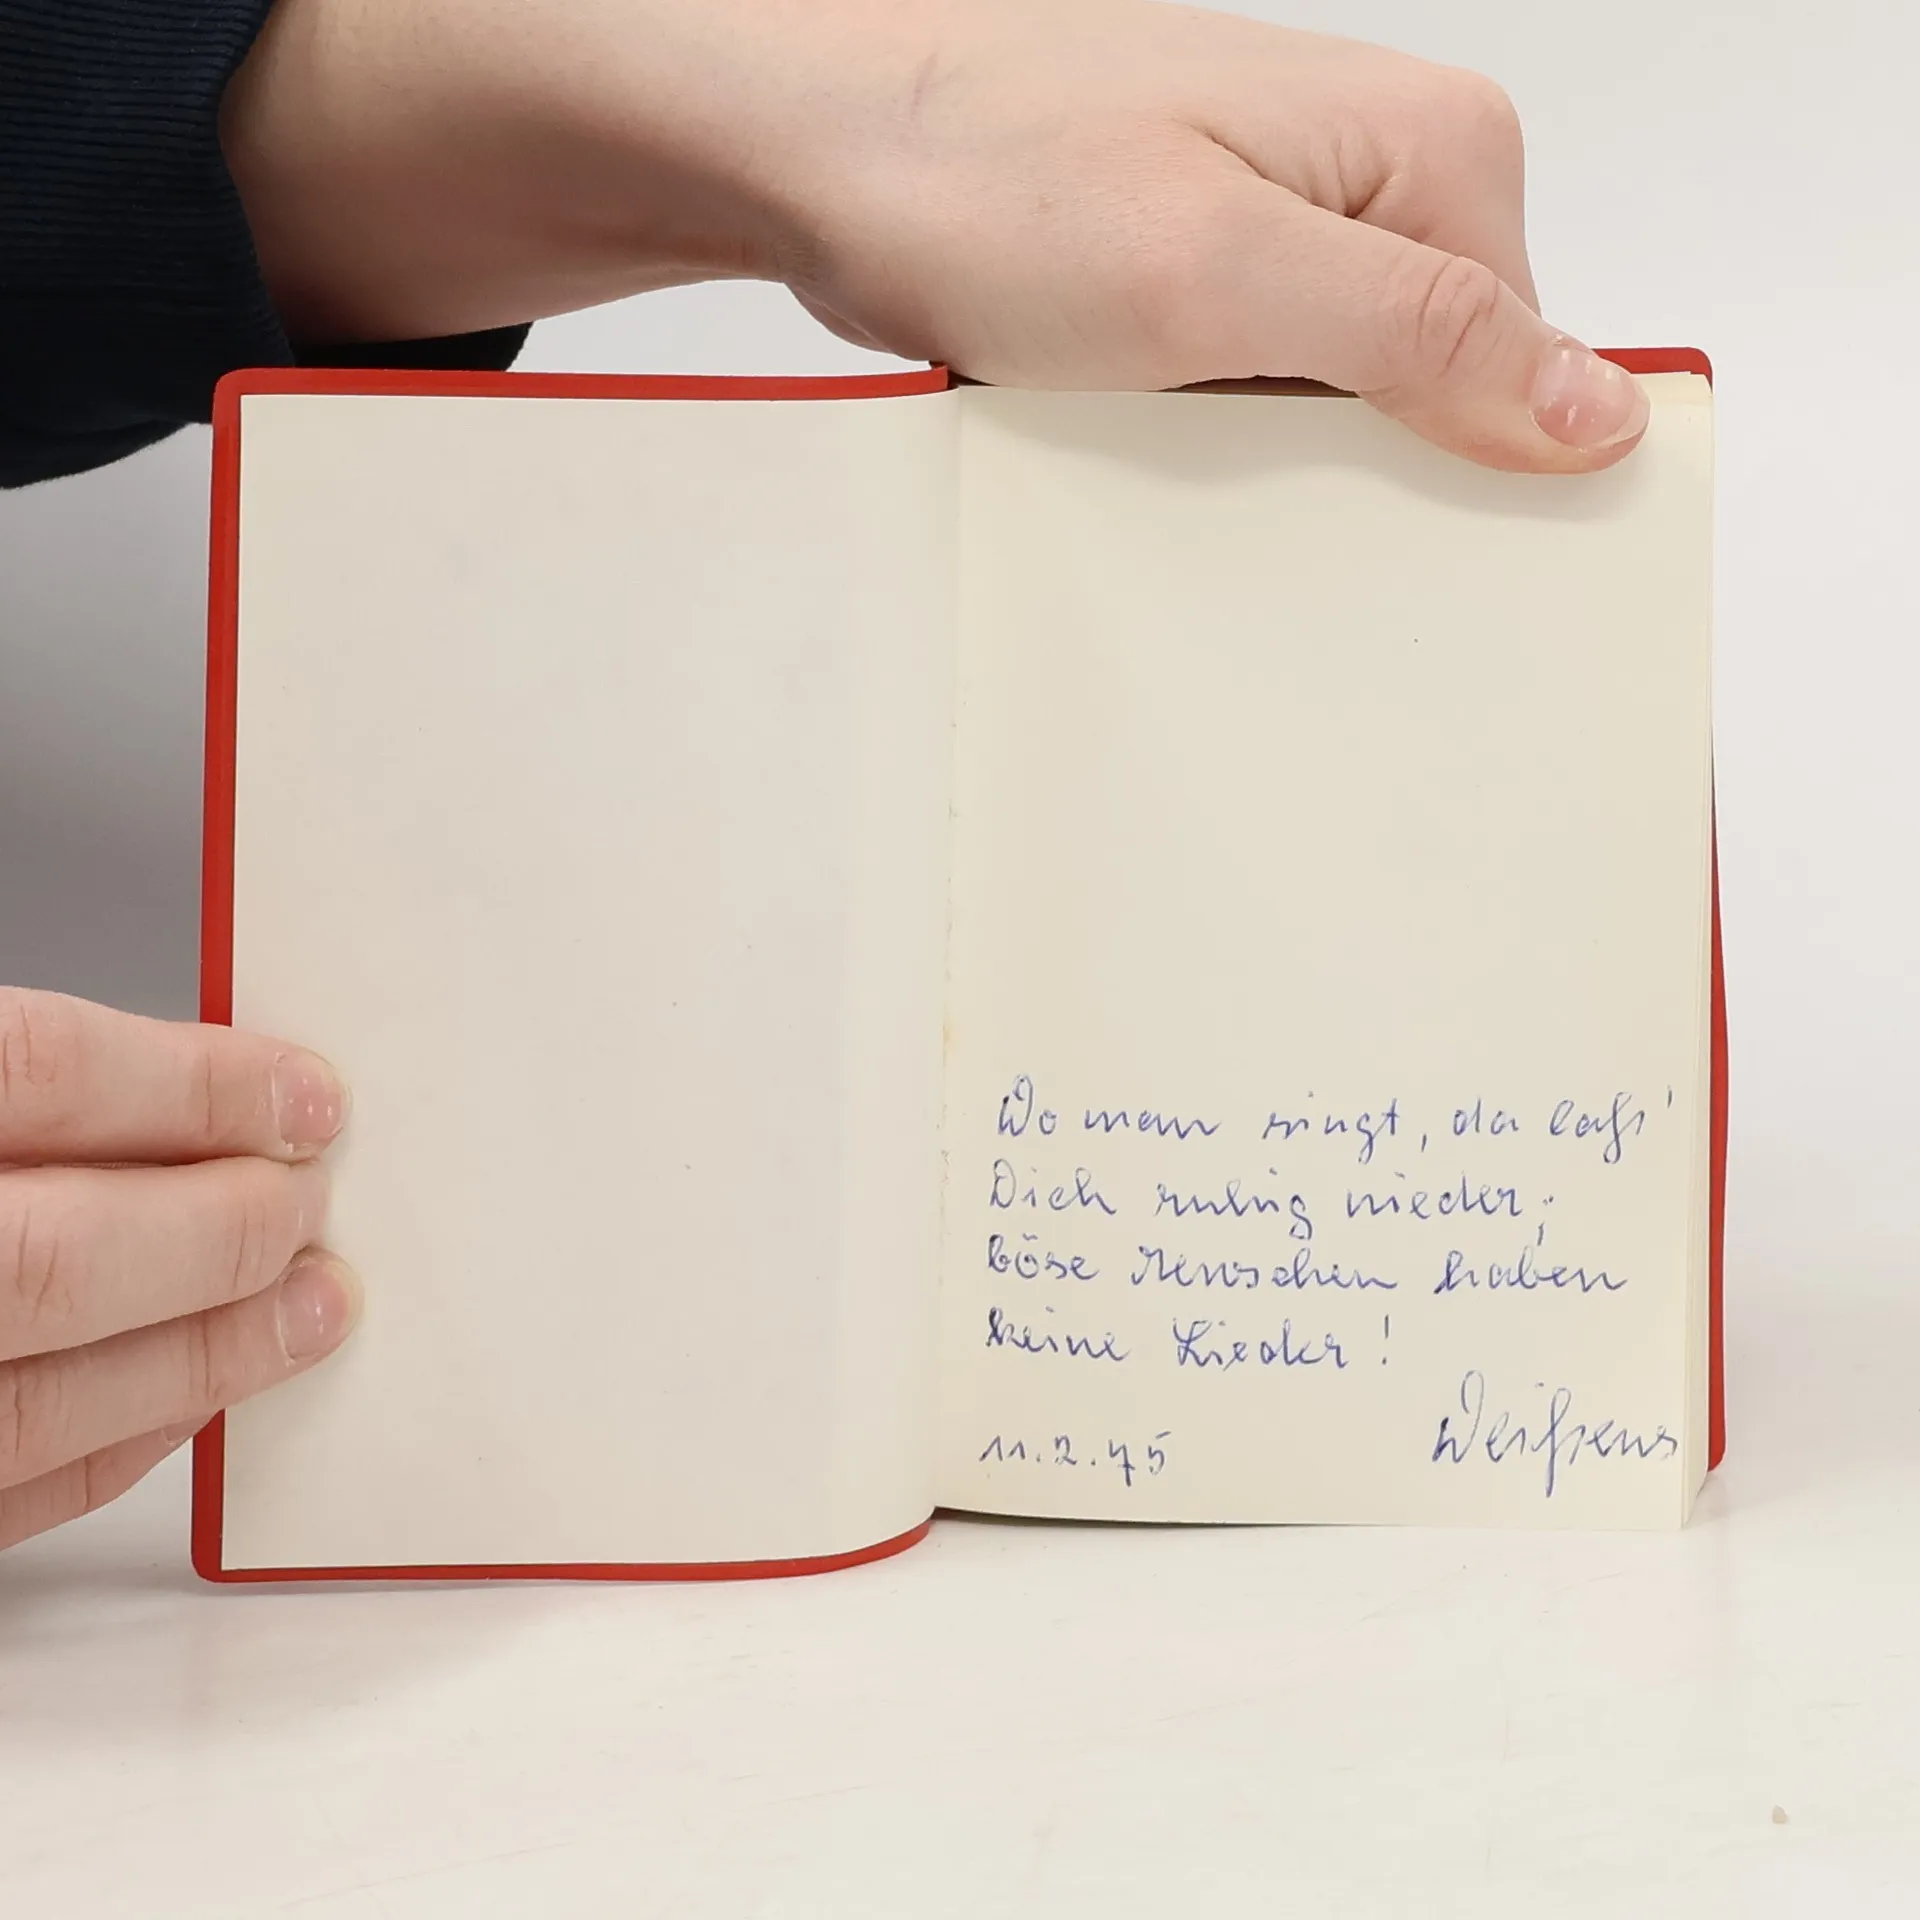 Wo man singt, da laß'
Dich ruhig nieder;
böse Menschen haben
keine Lieder!
Weißens
11.2.75